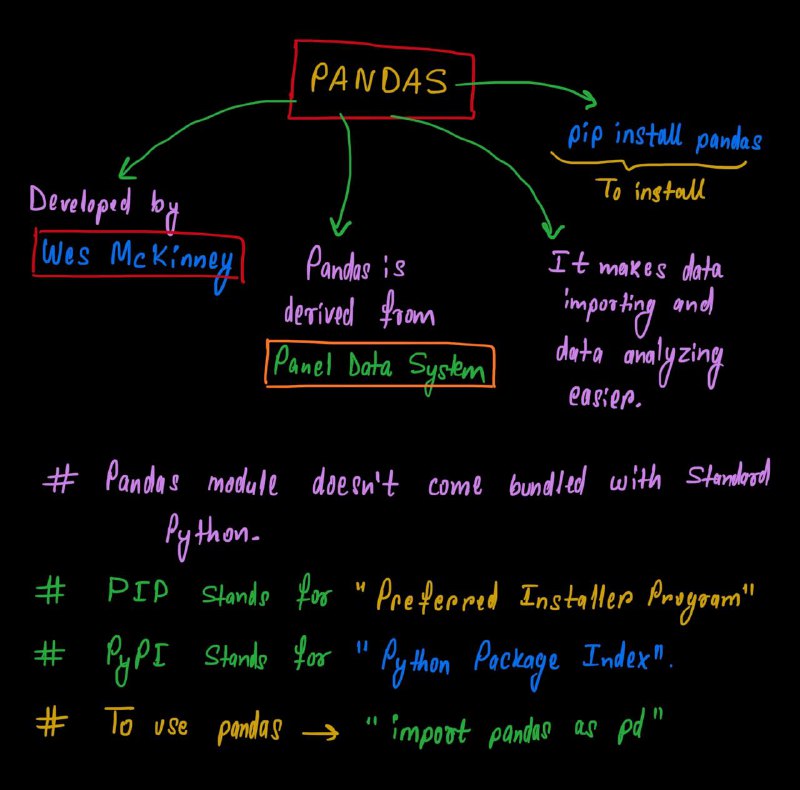 PANDAS
pip install pandas
To install
Developed by
Wes McKinney
Pandas is
derived from
Panel Data System
It makes data
importing and
data analyzing
easier.
# Pandas module doesn't come bundled with Standard
Python.
# PIP Stands for "Preferred Installer Program"
# PyPI Stands for "Python Package Index".
# To use pandas → "import pandas as pd"